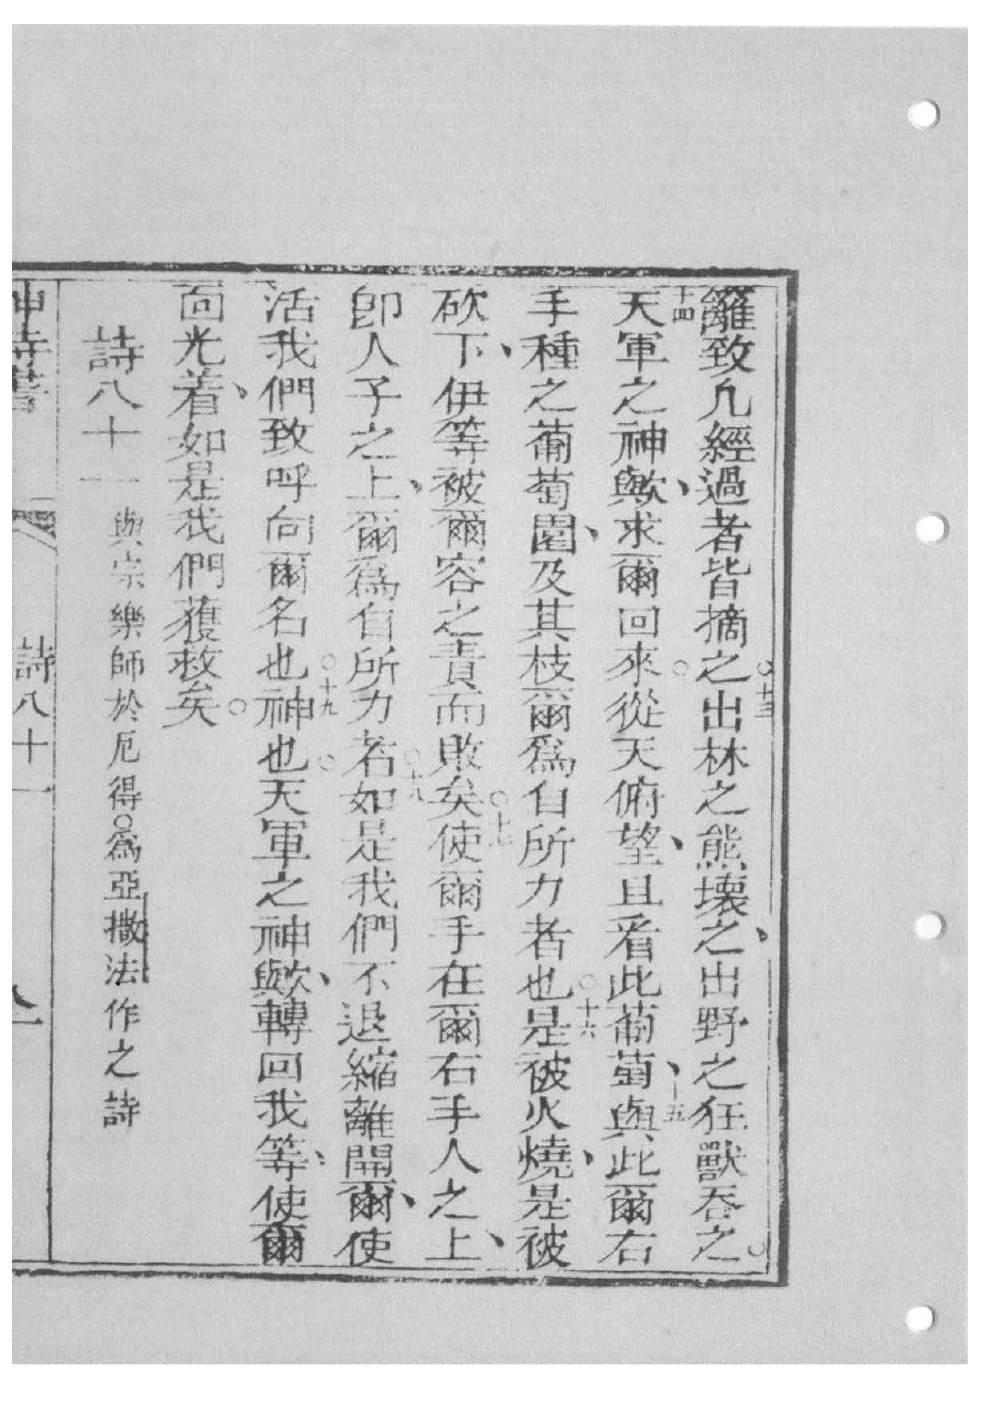 籬致凢經過者皆摘之○十三出林之熊壞之、出野之狂獸吞之○
十四天軍之神歟、求爾回來○從天俯望、且看此葡萄、十五與此爾右
手種之葡萄園、及其枝爾爲自所力者也○十六是被火燒、是被
砍下、伊等被爾容之責而敗矣○十七使爾手在爾右手人之上、
卽人子之上、爾爲自所力若○十八如是我們不退縮離開爾、使
活我們致呼向爾名也○十九神也○天軍之神歟、轉回我等、使爾
面光着、如是我們獲救矣○
詩八十一 與宗樂師於厄得○爲亞撒法作之詩
神詩書 詩八十一